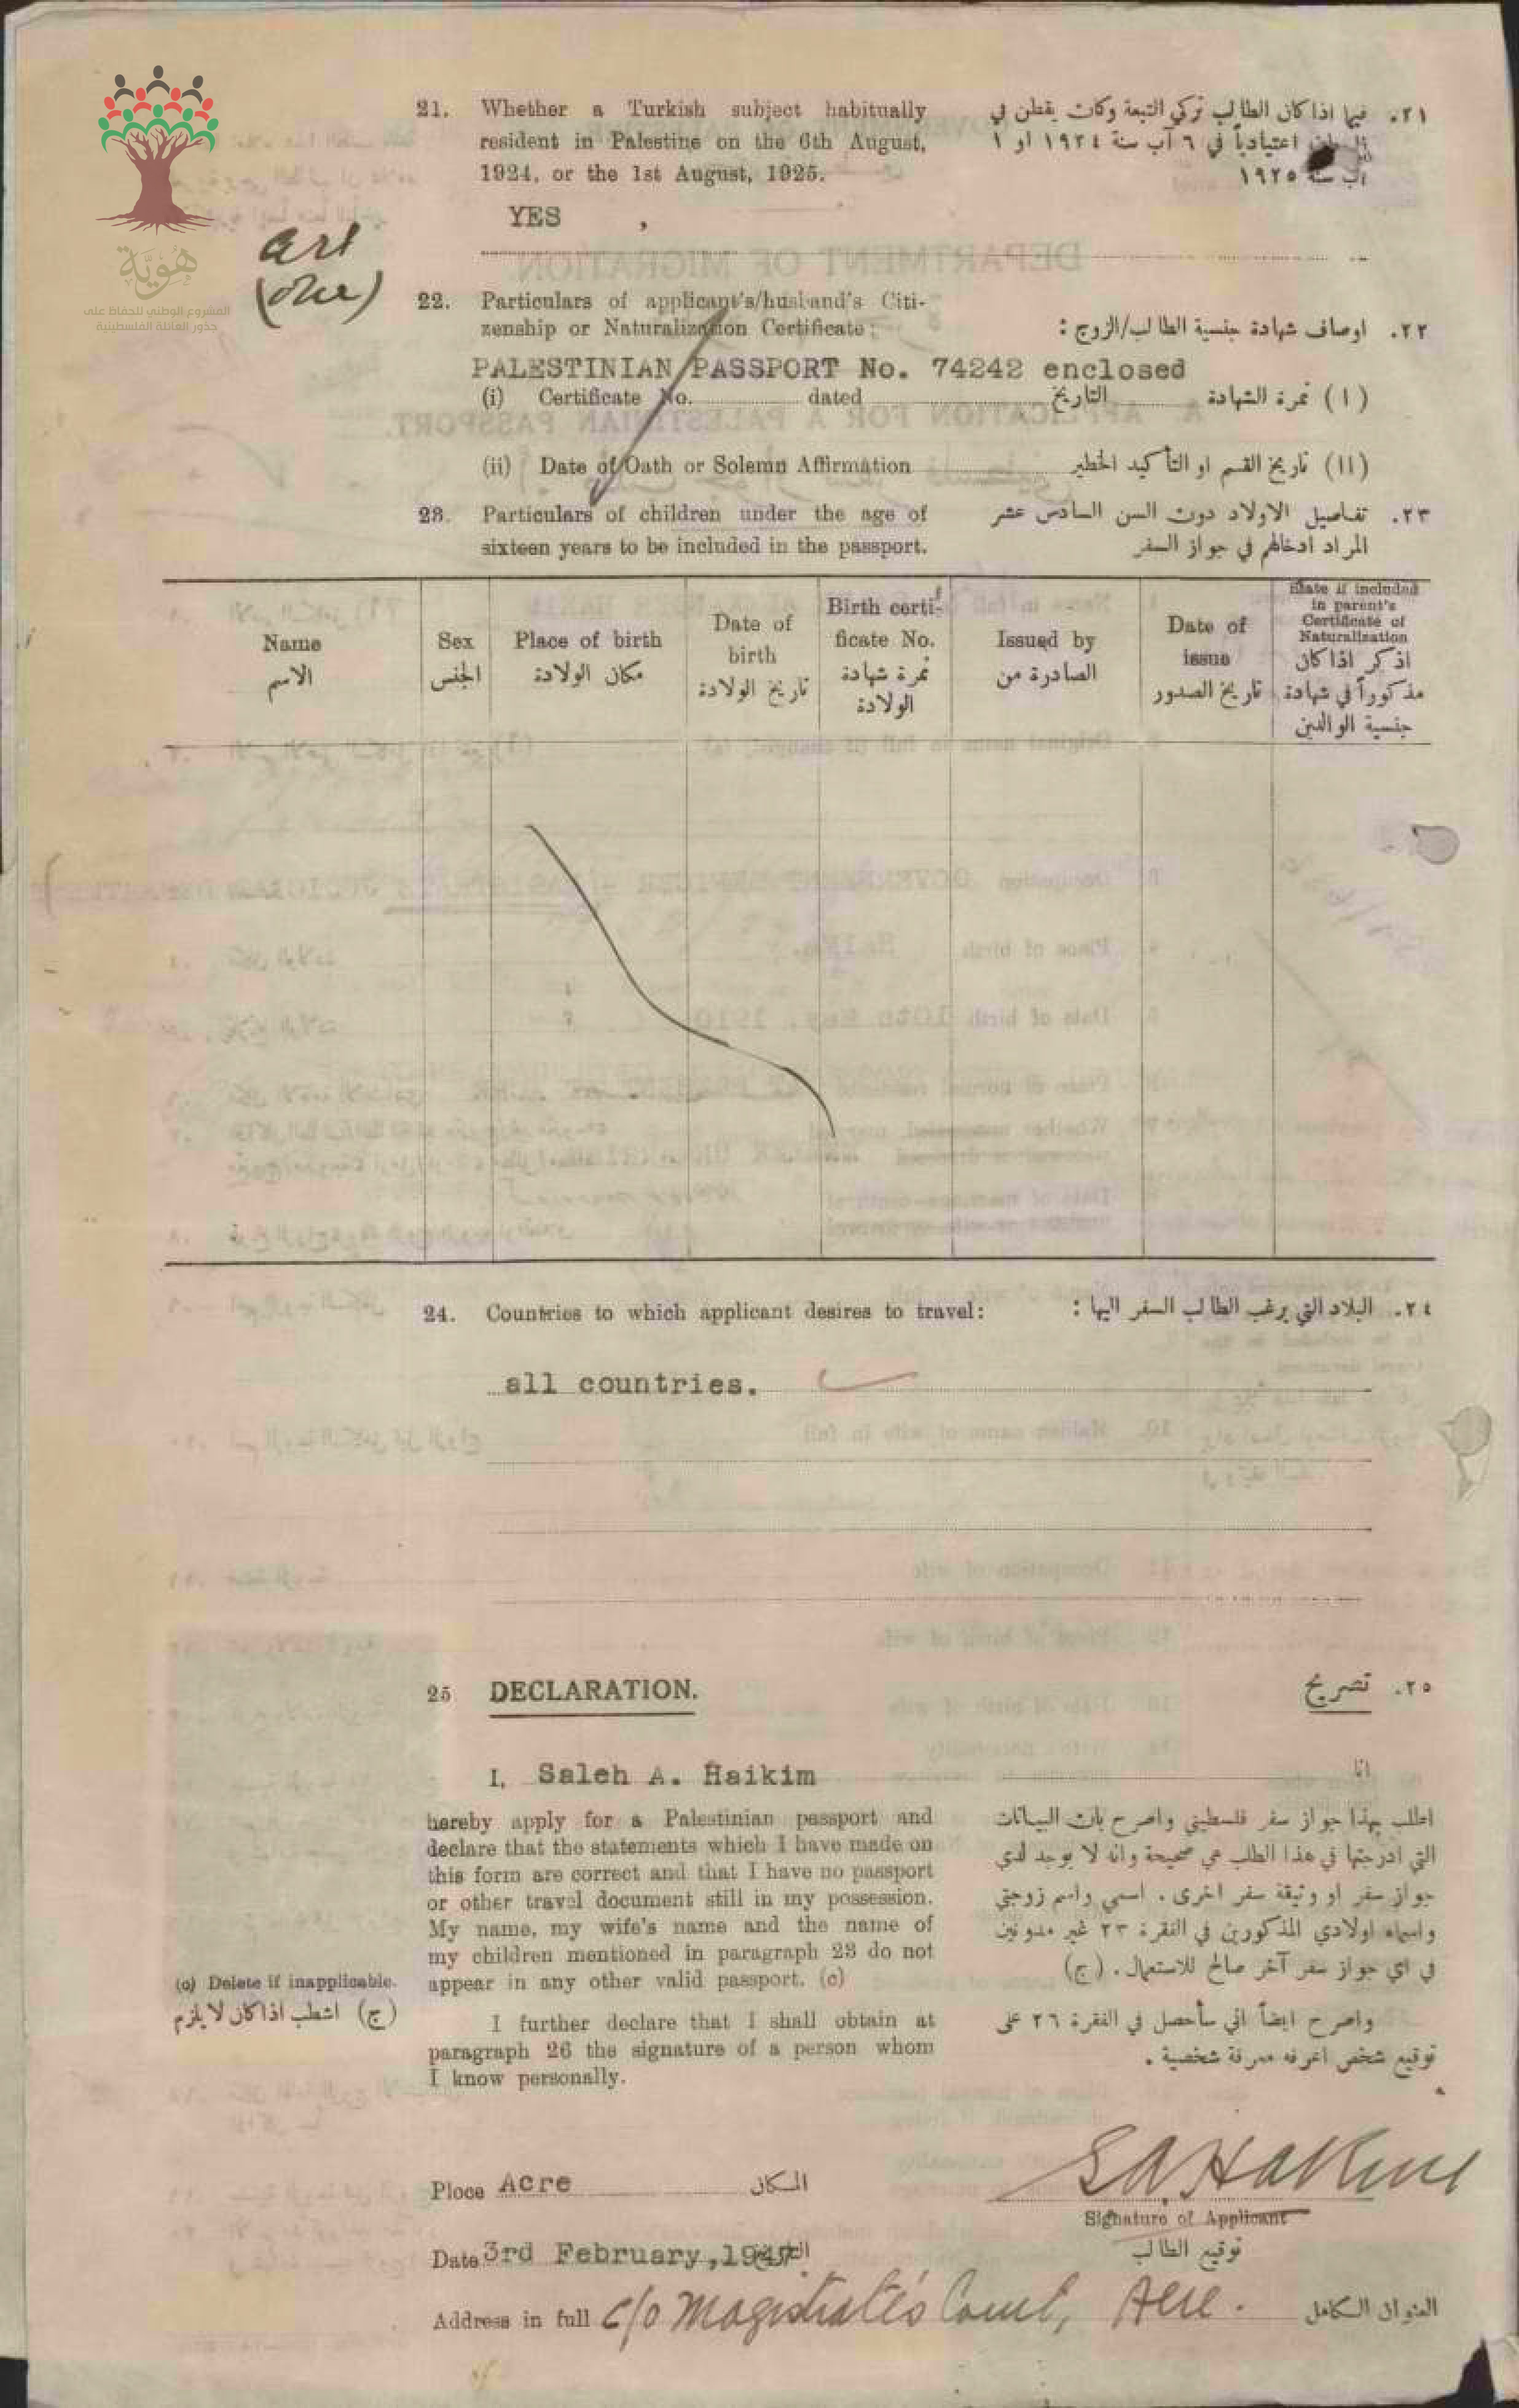 هُوِيَّة
المشروع الوطني للحفاظ على
جذور العائلة الفلسطينية
21. Whether a Turkish subject habitually
resident in Palestine on the 6th August,
1924, or the 1st August, 1925.
٢١. فيما اذا كان الطالب تركي التبعة وكان يقطن في
اعتيادياً في ٦ آب سنة ١٩٢٤ او ١
آب سنة ١٩٢٥
YES
art
(one)
22. Particulars of applicant's/husband's Citi-
zenship or Naturalization Certificate:
٢٢. اوصاف شهادة جنسية الطالب/الزوج :
PALESTINIAN PASSPORT No. 74242 enclosed
(i) Certificate No. dated التاريخ (I) نمرة الشهادة
(ii) Date of Oath or Solemn Affirmation (II) تاريخ القسم او التأكيد الخطير
23. Particulars of children under the age of
sixteen years to be included in the passport.
٢٣. تفاصيل الاولاد دون السن السادس عشر
المراد ادخالهم في جواز السفر
Name
الاسم
Sex
الجنس
Place of birth
مكان الولادة
Date of
birth
تاريخ الولادة
Birth certi-
ficate No.
نمرة شهادة
الولادة
Issued by
الصادرة من
Date of
issue
تاريخ الصدور
State if included
in parent's
Certificate of
Naturalization
اذكر اذا كان
مذكوراً في شهادة
جنسية الوالدين
24. Countries to which applicant desires to travel:
٢٤. البلاد التي يرغب الطالب السفر اليها :
all countries.
25 DECLARATION.
٢٥. تصريح
I, Saleh A. Haikim
انا
hereby apply for a Palestinian passport and
declare that the statements which I have made on
this form are correct and that I have no passport
or other travel document still in my possession.
My name, my wife's name and the name of
my children mentioned in paragraph 23 do not
appear in any other valid passport. (c)
اطلب بهذا جواز سفر فلسطيني واصرح بان البيانات
التي ادرجتها في هذا الطلب هي صحيحة وانه لا يوجد لدي
جواز سفر او وثيقة سفر اخرى . اسمي واسم زوجتي
واسماء اولادي المذكورين في الفقرة ٢٣ غير مدونين
في اي جواز سفر آخر صالح للاستعمال . (ج)
(c) Delete if inapplicable.
(ج) اشطب اذا كان لا يلزم
I further declare that I shall obtain at
paragraph 26 the signature of a person whom
I know personally.
واصرح ايضاً اني سأحصل في الفقرة ٢٦ على
توقيع شخص اعرفه معرفة شخصية .
Place Acre المكان
S A Hakim
Signature of Applicant
توقيع الطالب
Date 3rd February, 1947 التاريخ
Address in full c/o Magistrate's Court, Acre. العنوان الكامل